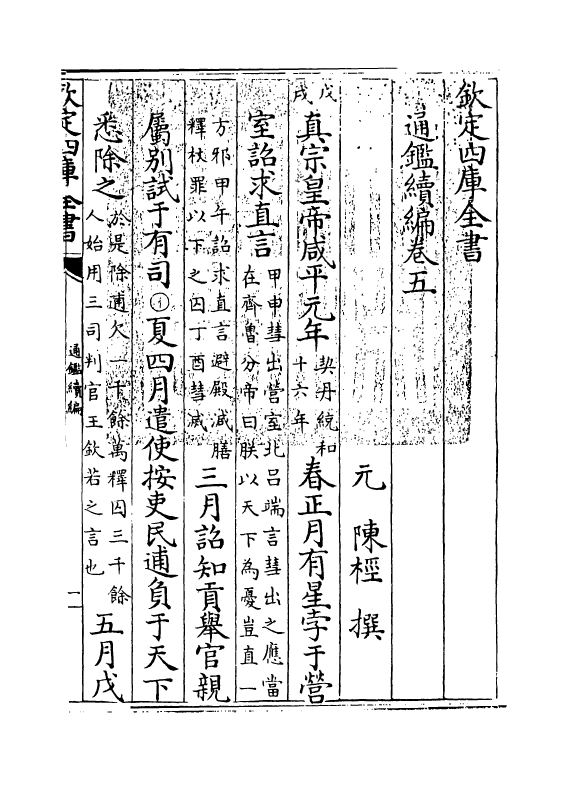 欽定四庫全書
通鑑續編卷五
元　陳桱　撰
戊戌
真宗皇帝咸平元年
契丹統和
十六年
春正月有星孛于營
室詔求直言
甲申彗出營室北吕端言彗出之應當
在齊魯分帝曰朕以天下為憂豈直一
方邪甲午詔求直言避殿減膳
釋杖罪以下之囚丁酉彗滅
三月詔知貢舉官親
屬別試于有司
夏四月遣使按吏民逋負于天下
悉除之
於是除逋欠一千餘萬釋囚三千餘
人始用三司判官王欽若之言也
五月戊
欽定四庫全書
通鑑續編
一